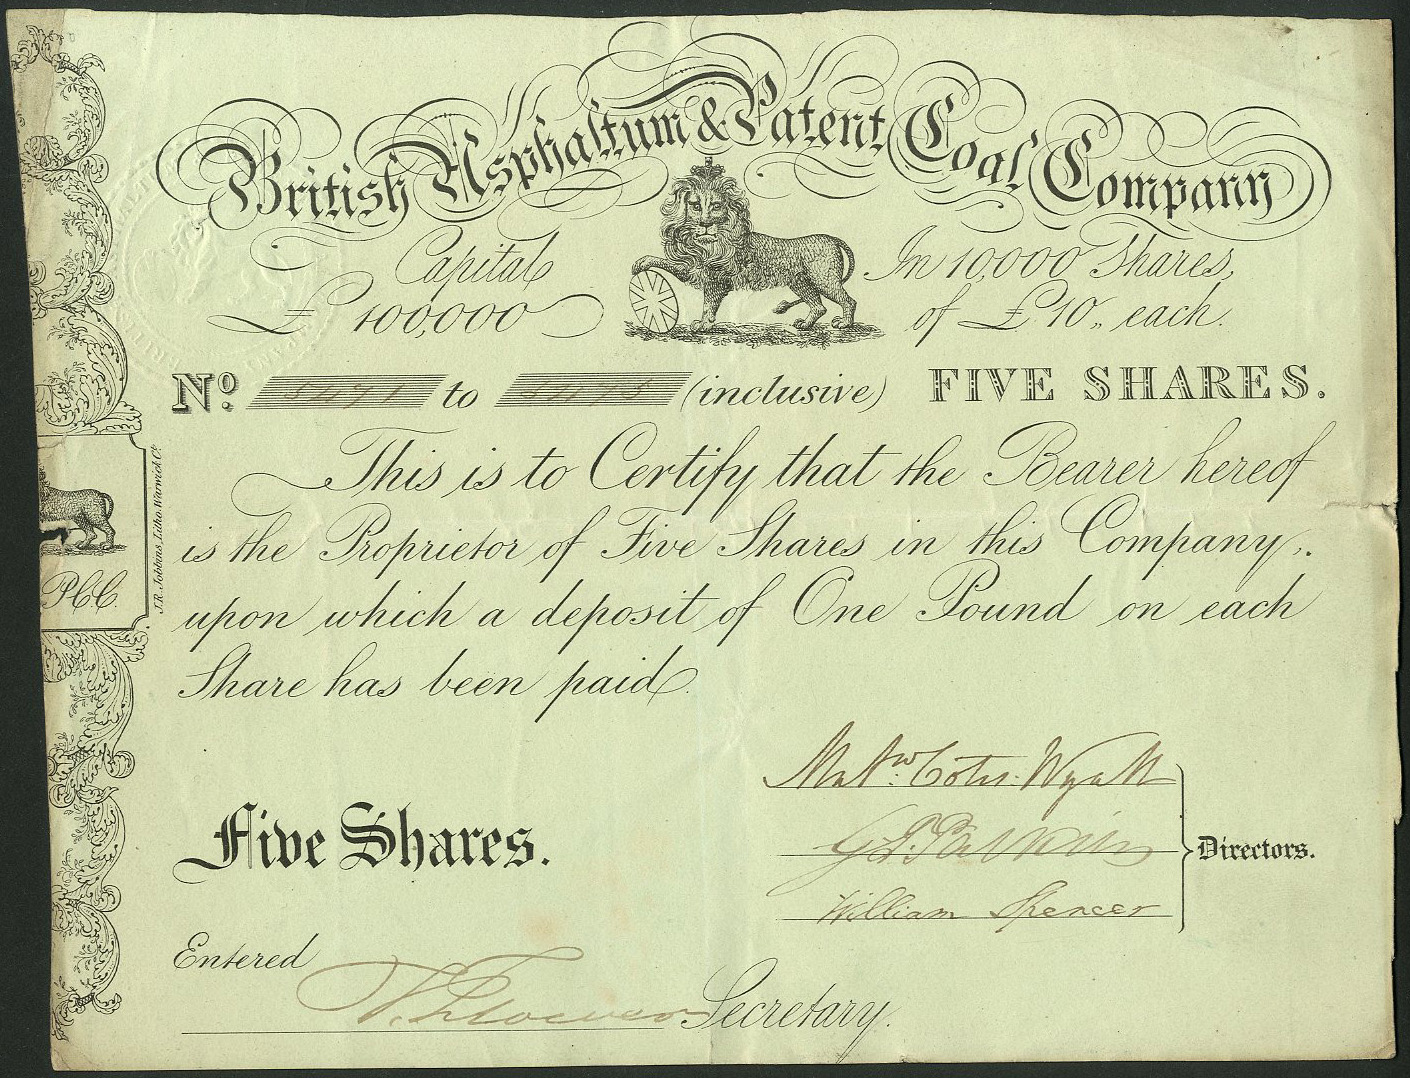 British Asphaltum & Patent Coal Company
Capital
£100,000
In 10,000 Shares,
of £10,, each.
No. 5471 to 5475 (inclusive) FIVE SHARES.
This is to Certify that the Bearer hereof
is the Proprietor of Five Shares in this Company,
upon which a deposit of One Pound on each
Share has been paid.
J.R. Jobbins, Litho. Warwick Ct.
P.C.C.
Matw. Cotes Wyatt
William Spencer
Directors.
Five Shares.
Entered
Secretary.